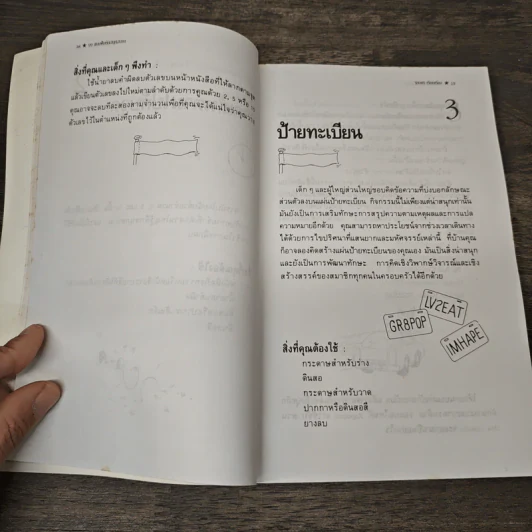 สิ่งที่คุณและเด็ก ๆ พึงทำ :
ใช้น้ำยาลบคำผิดลบตัวเลขบนหน้าหนังสือที่ให้ลากตามจุด
แล้วเขียนตัวเลขลงไปใหม่ตามลำดับด้วยการคูณด้วย 2, 5 หรือ 10
คุณอาจจะลบทีละสองสามจำนวนเพื่อที่คุณจะได้แน่ใจว่าคุณวาง
ตัวเลขไว้ในตำแหน่งที่ถูกต้องแล้ว
3
ป้ายทะเบียน
เด็ก ๆ และผู้ใหญ่ส่วนใหญ่ชอบคิดข้อความที่บ่งบอกลักษณะ
ส่วนตัวลงบนแผ่นป้ายทะเบียน กิจกรรมนี้ไม่เพียงแต่น่าสนุกเท่านั้น
มันยังเป็นการเสริมทักษะการสรุปความตามเหตุผลและการแปล
ความหมายอีกด้วย คุณสามารถหาประโยชน์จากช่วงเวลาเดินทาง
ได้ด้วยการไขปริศนาที่แสนยากและมหัศจรรย์เหล่านี้ ที่บ้านคุณ
ก็อาจลองคิดสร้างแผ่นป้ายทะเบียนของคุณเอง มันเป็นสิ่งน่าสนุก
และยังเป็นการพัฒนาทักษะ การคิดเชิงวิพากษ์วิจารณ์และเชิง
สร้างสรรค์ของสมาชิกทุกคนในครอบครัวได้อีกด้วย
LV2EAT
GR8POP
IMHAPE
สิ่งที่คุณต้องใช้ :
กระดาษสำหรับร่าง
ดินสอ
กระดาษสำหรับวาด
ปากกาหรือดินสอสี
ยางลบ